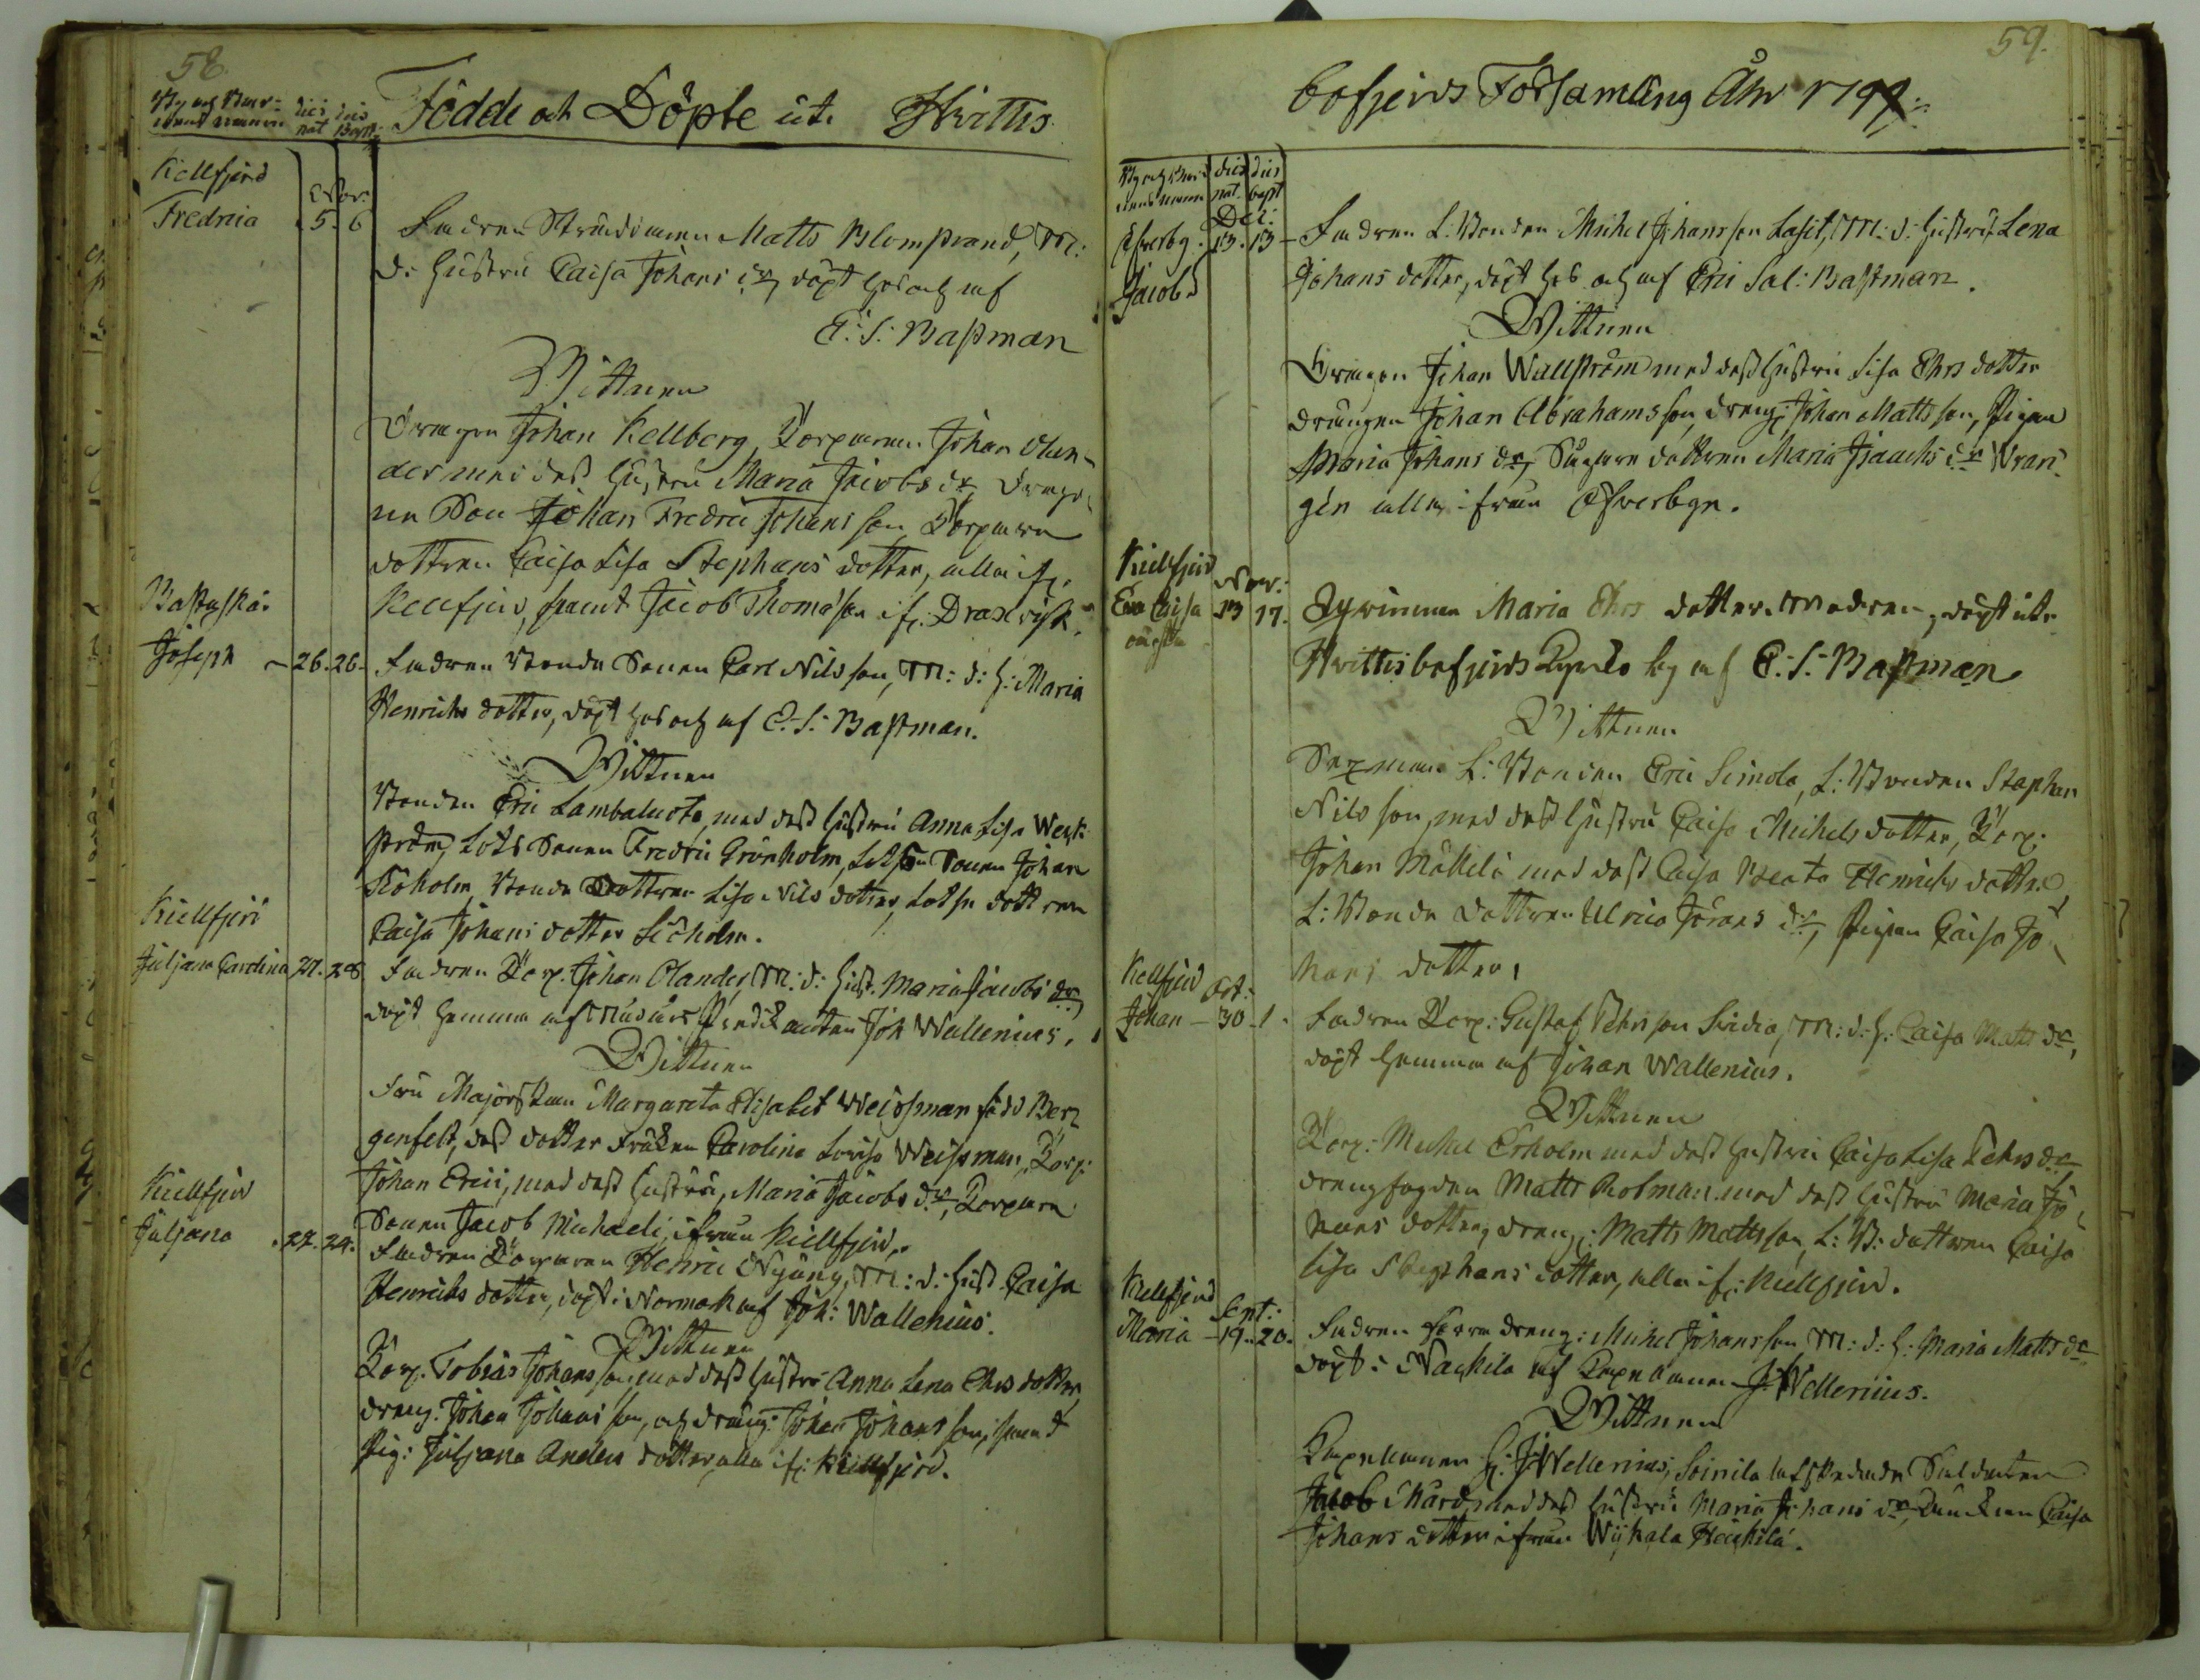 58.
By och Barn-
ens namn dies nat dies Bapt:
Födde och Döpte uti Hvittis
Kellfjerd
Nov:
Fredrica 5. 6 Fadren Strandman Matts Blomstrand, M:
d: hustru Caisa Johans dr, döpt hos och af
E: S: Bastman
Wittnen
Drengen Johan Kellberg, Torparen Johan Olan-
der med dess hustru Maria Jacobs dr, Torpa-
re Son Johan Fredric Johansson, Torpare
dottren Caisa Lisa Stephans dotter, alla ifr.
Kellfjerd, samt Jacob Thomasson ifr.
Bastuskär
Joseph - 26. 26. Fadren Bonde Sonen Carl Nilsson, M: d: h: Maria
Henrichs dotter, döpt hos och af E: S: Bastman.
Wittnen
Bonden Eric Lambaluoto, med dess hustru Anna Lisa West-
ström, Lots Sonen Fredric Grönholm, Lots Sonen Johan
Siöholm, Bonde Dottren Lisa Nils dotter, Lotse dottren
Caisa Johans dotter Siöholm.
Kiellfjerd
Juljana Carolina 27. 28 Fadren Torp. Johan Olander, M: d: hust. Maria Jacobs dr
döpt hemma af Joh Wallenius.
Wittnen
Fru Majorskan Margareta Elisabet Weissman född Ber-
genfelt, dess dotter Fröken Carolina Lovisa Weissman, Torp:
Johan Erici, med dess hustru, Maria Jacobs dr, Torpare
Sonen Jacob Michaeli, ifrån Kiellfjerd.
Kiellfjerd
Juljana 22. 24. Fadren Torparen Henric Nygång, M: d: Hust. Caisa
Henrichs dotter, döpt i Normark af Joh: Wallenius.
Wittnen
Torp. Tobias Johansson med dess hustru Anna Lena Ehrs dotter,
dreng. Johan Johansson, och dräng. Johan Johansson, samt
Pig: Juljana Anders dotter alla ifr: Kiellfjerd.
59.
bofjerds Församling Åhr 179
By och Barn-
ens namn dies nat. dies bapt
Dec:
13. 13 Fadren L: Bonden Michel Johansson Lasit, M: d: Hustru Lena
Jacob Johans dotter, döpt hos och af Eric Sal: Bastman.
Wittnen
Drengen Johan Wallström med dess hustru Lisa Ehrs dotter
drengen Johan Abrahamsson, dreng: Johan Mattsson, Pigan
Maria Johans dr, dottren Maria Isaachs dr
alla ifrån
Kiellfjerd
Nov:
Eva Caisa 13 17. Maria Ehrs dotter Modren, döpt uti
oäckta Hvittisbofjerds af E: S: Bastman
Wittnen
Sexman L: Bonden Eric Simola, L: Bonden Stephan
Nilsson, med dess hustru Caisa Michels dotter, Torp:
Johan Mäkelä med dess Caisa Beata Henrichs dotter
L: Bonde dottren Ulrica Jörans dr, Pigan Caisa Jo-
hans dotter.
Kellfjerd
Oct:
Johan - 30. 1. Fadren Torp: Gustaf Pehrsson M: d: h: Caisa Matts dr,
döpt hemma af Johan Wallenius.
Wittnen
Torp: Michel Erholm med dess hustru Caisa Lisa Pehrs dr
drengfogden Matts Rolman med dess hustru Maria Jo-
hans dotter, dreng: Matts Mattsson, L: B: dottren Caisa
Lisa Stephans dotter, alla ifr: Kiellfjerd.
Kiellfjerd
Sept:
Maria - 19. 20. Fadren dreng: Michel Johansson M: d: h: Maria Matts dr
döpt i Nackila af Kapellanen J: Wellenius.
Wittnen
Kapellanen H: J: Wellenius, Soinila afskedade Soldaten
Jacob Mård med dess hustru Maria Johans dr, Caisa
Johans dotter ifrån Wijkala Hackila.